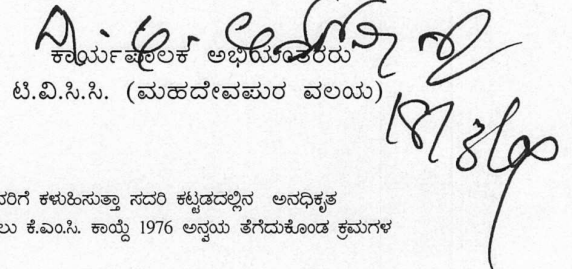 ಕಾರ್ಯಪಾಲಕ ಅಭಿಯಂತರರು
ಟಿ.ವಿ.ಸಿ.ಸಿ. (ಮಹದೇವಪುರ ವಲಯ)
ವರಿಗೆ ಕಳುಹಿಸುತ್ತಾ ಸದರಿ ಕಟ್ಟಡದಲ್ಲಿನ ಅನಧಿಕೃತ
ಲು ಕೆ.ಎಂ.ಸಿ. ಕಾಯ್ದೆ 1976 ಅನ್ವಯ ತೆಗೆದುಕೊಂಡ ಕ್ರಮಗಳ